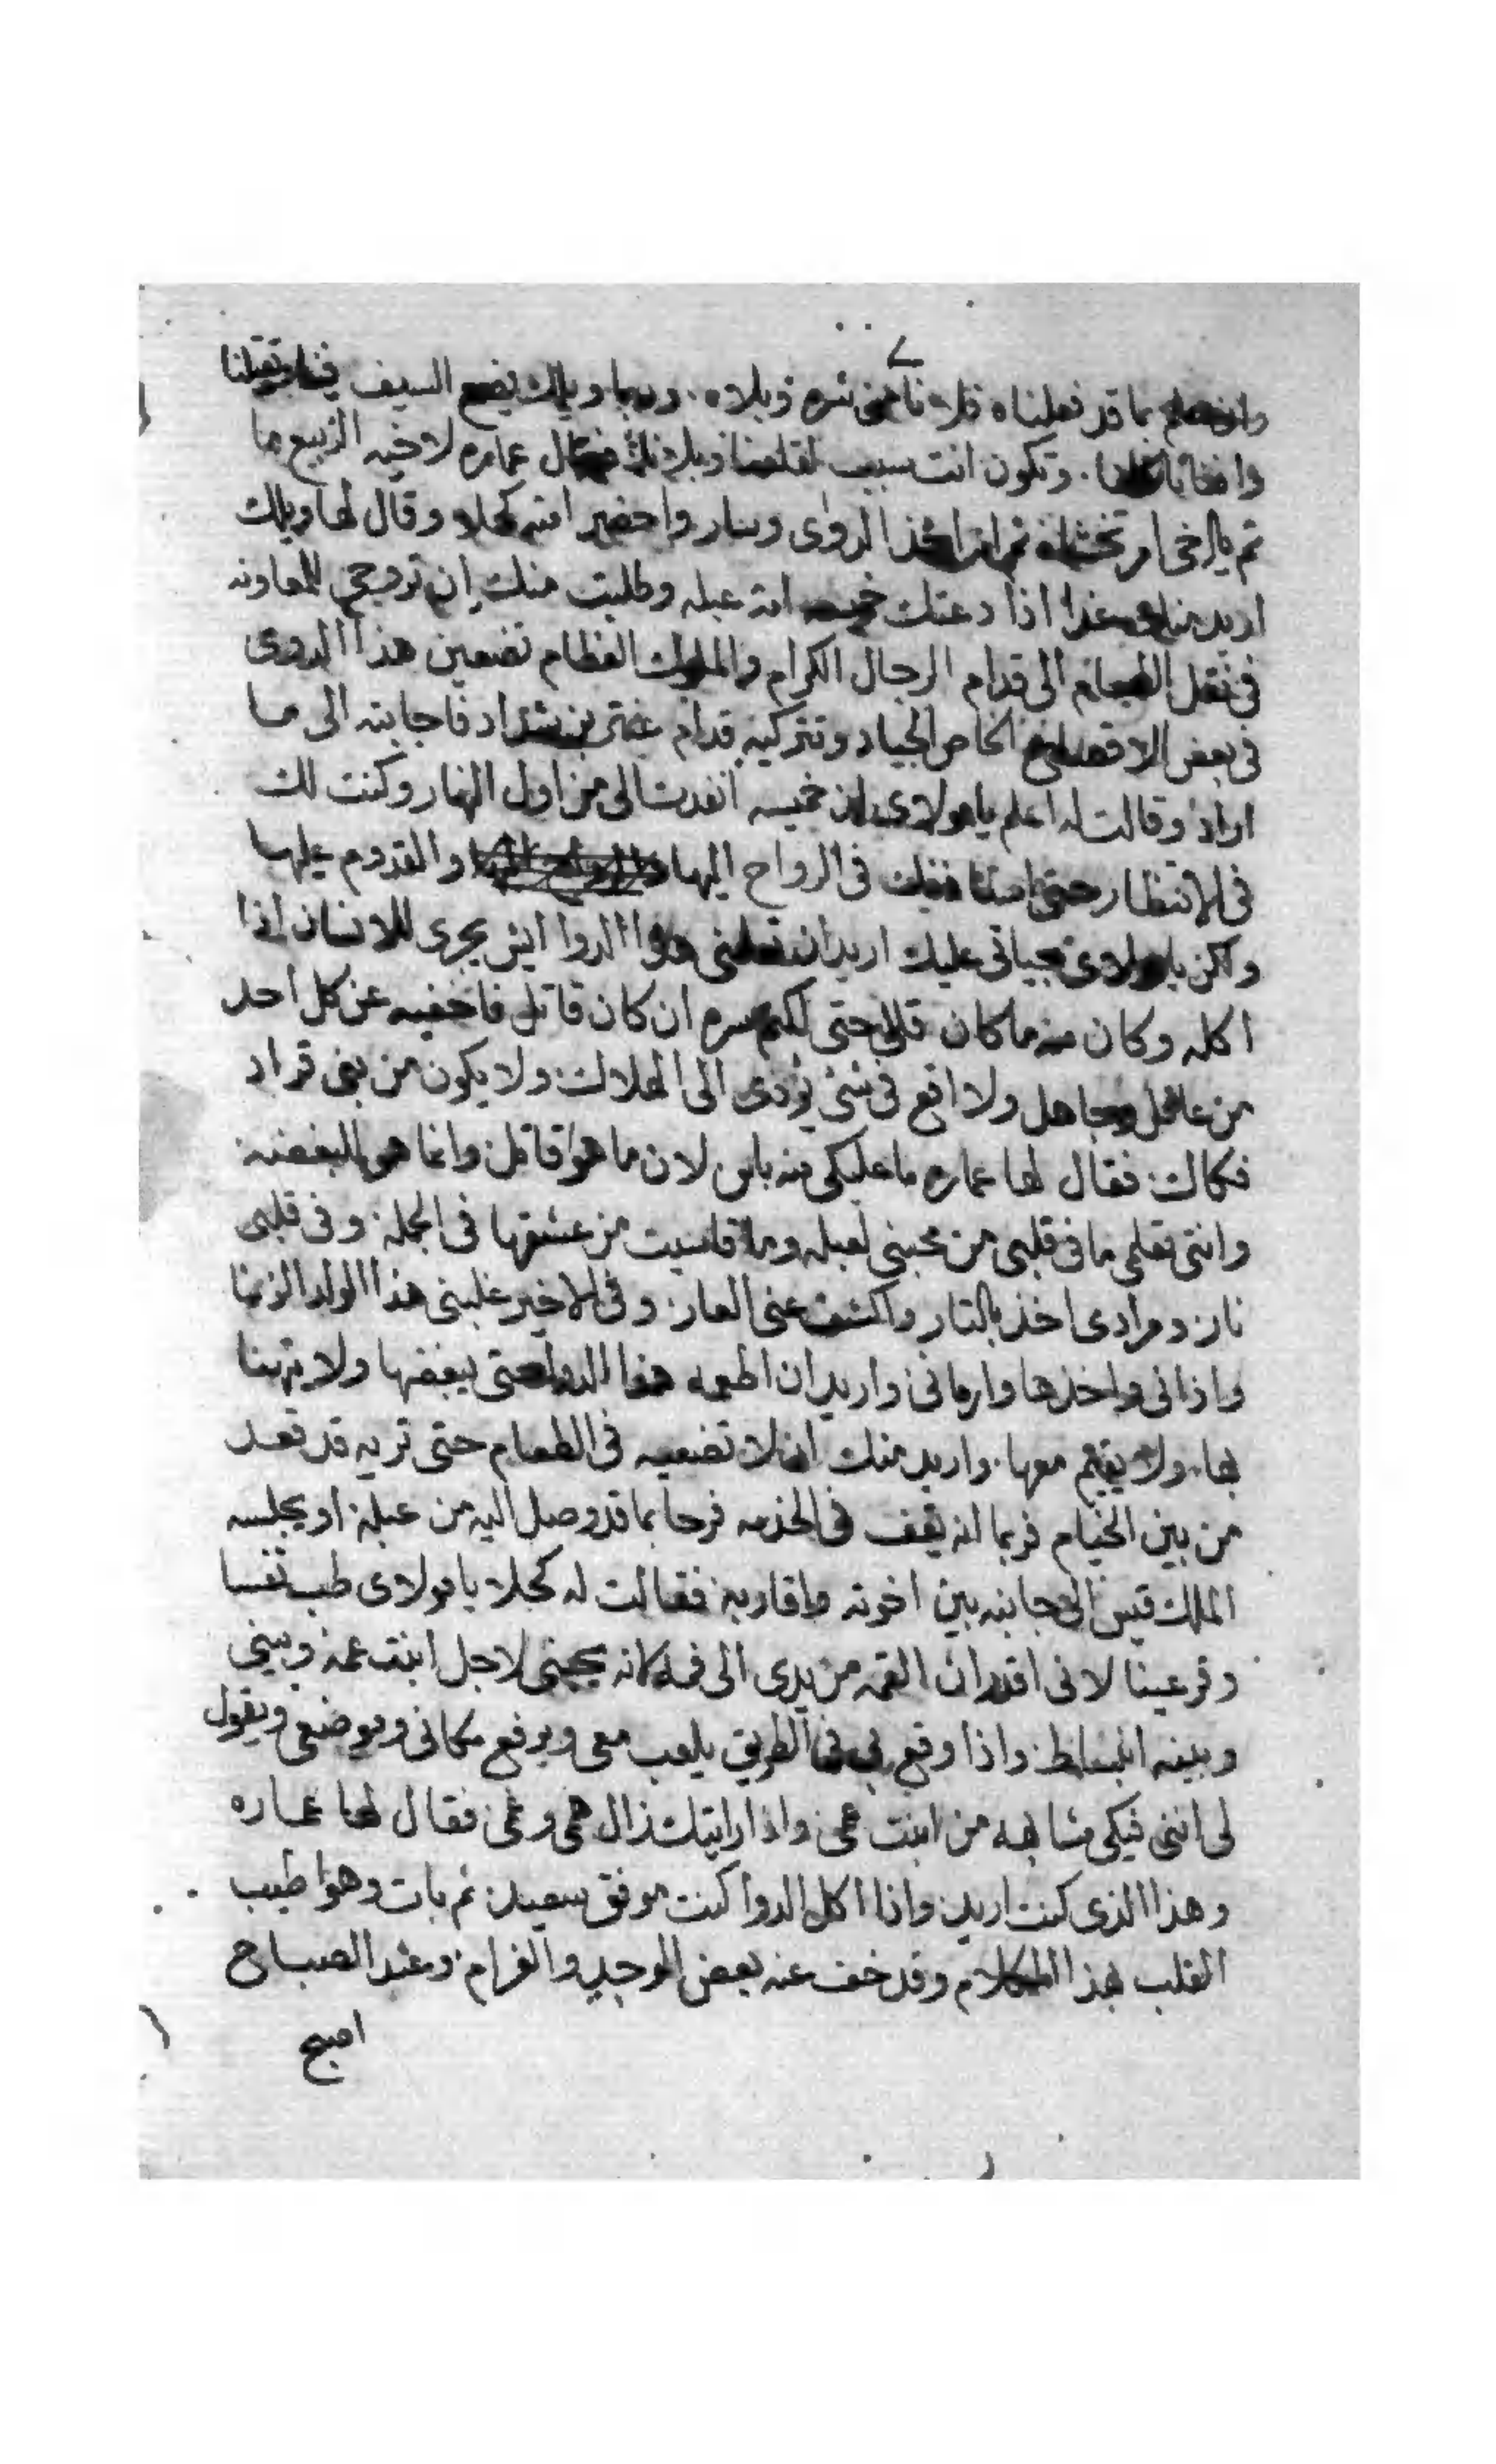 ٧
بما قد فعلناه نامن شره وبلاه. وربما ويلك يضع السيف فينا ويقتلنا
وتكون انت سبب عماره لاخيه الربيع ما
تم يا اخي امر تخشاه ثم انه اخذ الدوا وسار واحضر امته كحلا وقال لها ويلك
اريد منك غدا اذا دعتك خميسه امة عبله وطلبت منك ان تروحي للمعاونه
في نقل الطعام الى قدام الرجال الكرام والملوك العظام تضعين هذا الدوى
في بعض الاقداح الخاص الجياد وتتركيه قدام عنتر بن شداد فاجابته الى ما
اراد وقالت له اعلم يا مولاى ان خميسه انفدت الى من اول النهار وكنت لك
في الانتظار حتى في الرواح اليها والقدوم عليها
ولكن يا مولاى بحياتى عليك اريد ان تعلمنى هذا الدوا ايش يجرى للانسان اذا
اكله وكان منه ما كان قللى حتى اكتم سره ان كان قاتل فاخفيه عن كل احد
من عاقل وجاهل ولا اقع في شئ يؤدى الى الهلاك ولا يكون من بنى قراد
فكاك فقال لها عماره ما عليكى منه باس لان ما هوا قاتل وانما هو للبغضه
وانتى تعلمى ما فى قلبى من محبتى لعبله وما قاسيت من عشقها فى الجمله وفى قلبى
نار ومرادى اخذ بالتار واكشف عنى العار وفى الاخير غلبنى هذا الولد الزنا
واذانى واخذها وارمانى واريد ان اطعمه هذا الدوا حتى يبغضها ولا يتهنا
بها ولا يقيم معها واريد منك ان لا تضعيه فى الطعام حتى تريه قد قعد
من بين الخيام فربما انه يقف فى الخدمه فرحا بما قد وصل اليه من عبله او يجلسه
الملك قيس الى جانبه بين اخوته واقاربه فقالت له كحلا يا مولاى طب نفسا
وقر عينا لانى اقدر ان القمه من يدى الى فمه لانه يحبنى لاجل ابنت عمه وبينى
وبينه انبساط واذا وقع بى فى الطريق يلعب معى ويرفع مكانى وموضعى ويقول
لى انتى فيكى مشابهه من ابنت عمى واذا رايتك زال همى وغمى فقال لها عماره
وهذا الذى كنت اريد واذا اكل الدوا كنت موفق سعيد ثم بات وهوا طيب
القلب بهذا الكلام وقد خف عنه بعض الوجد والغرام وعند الصباح
اصبح